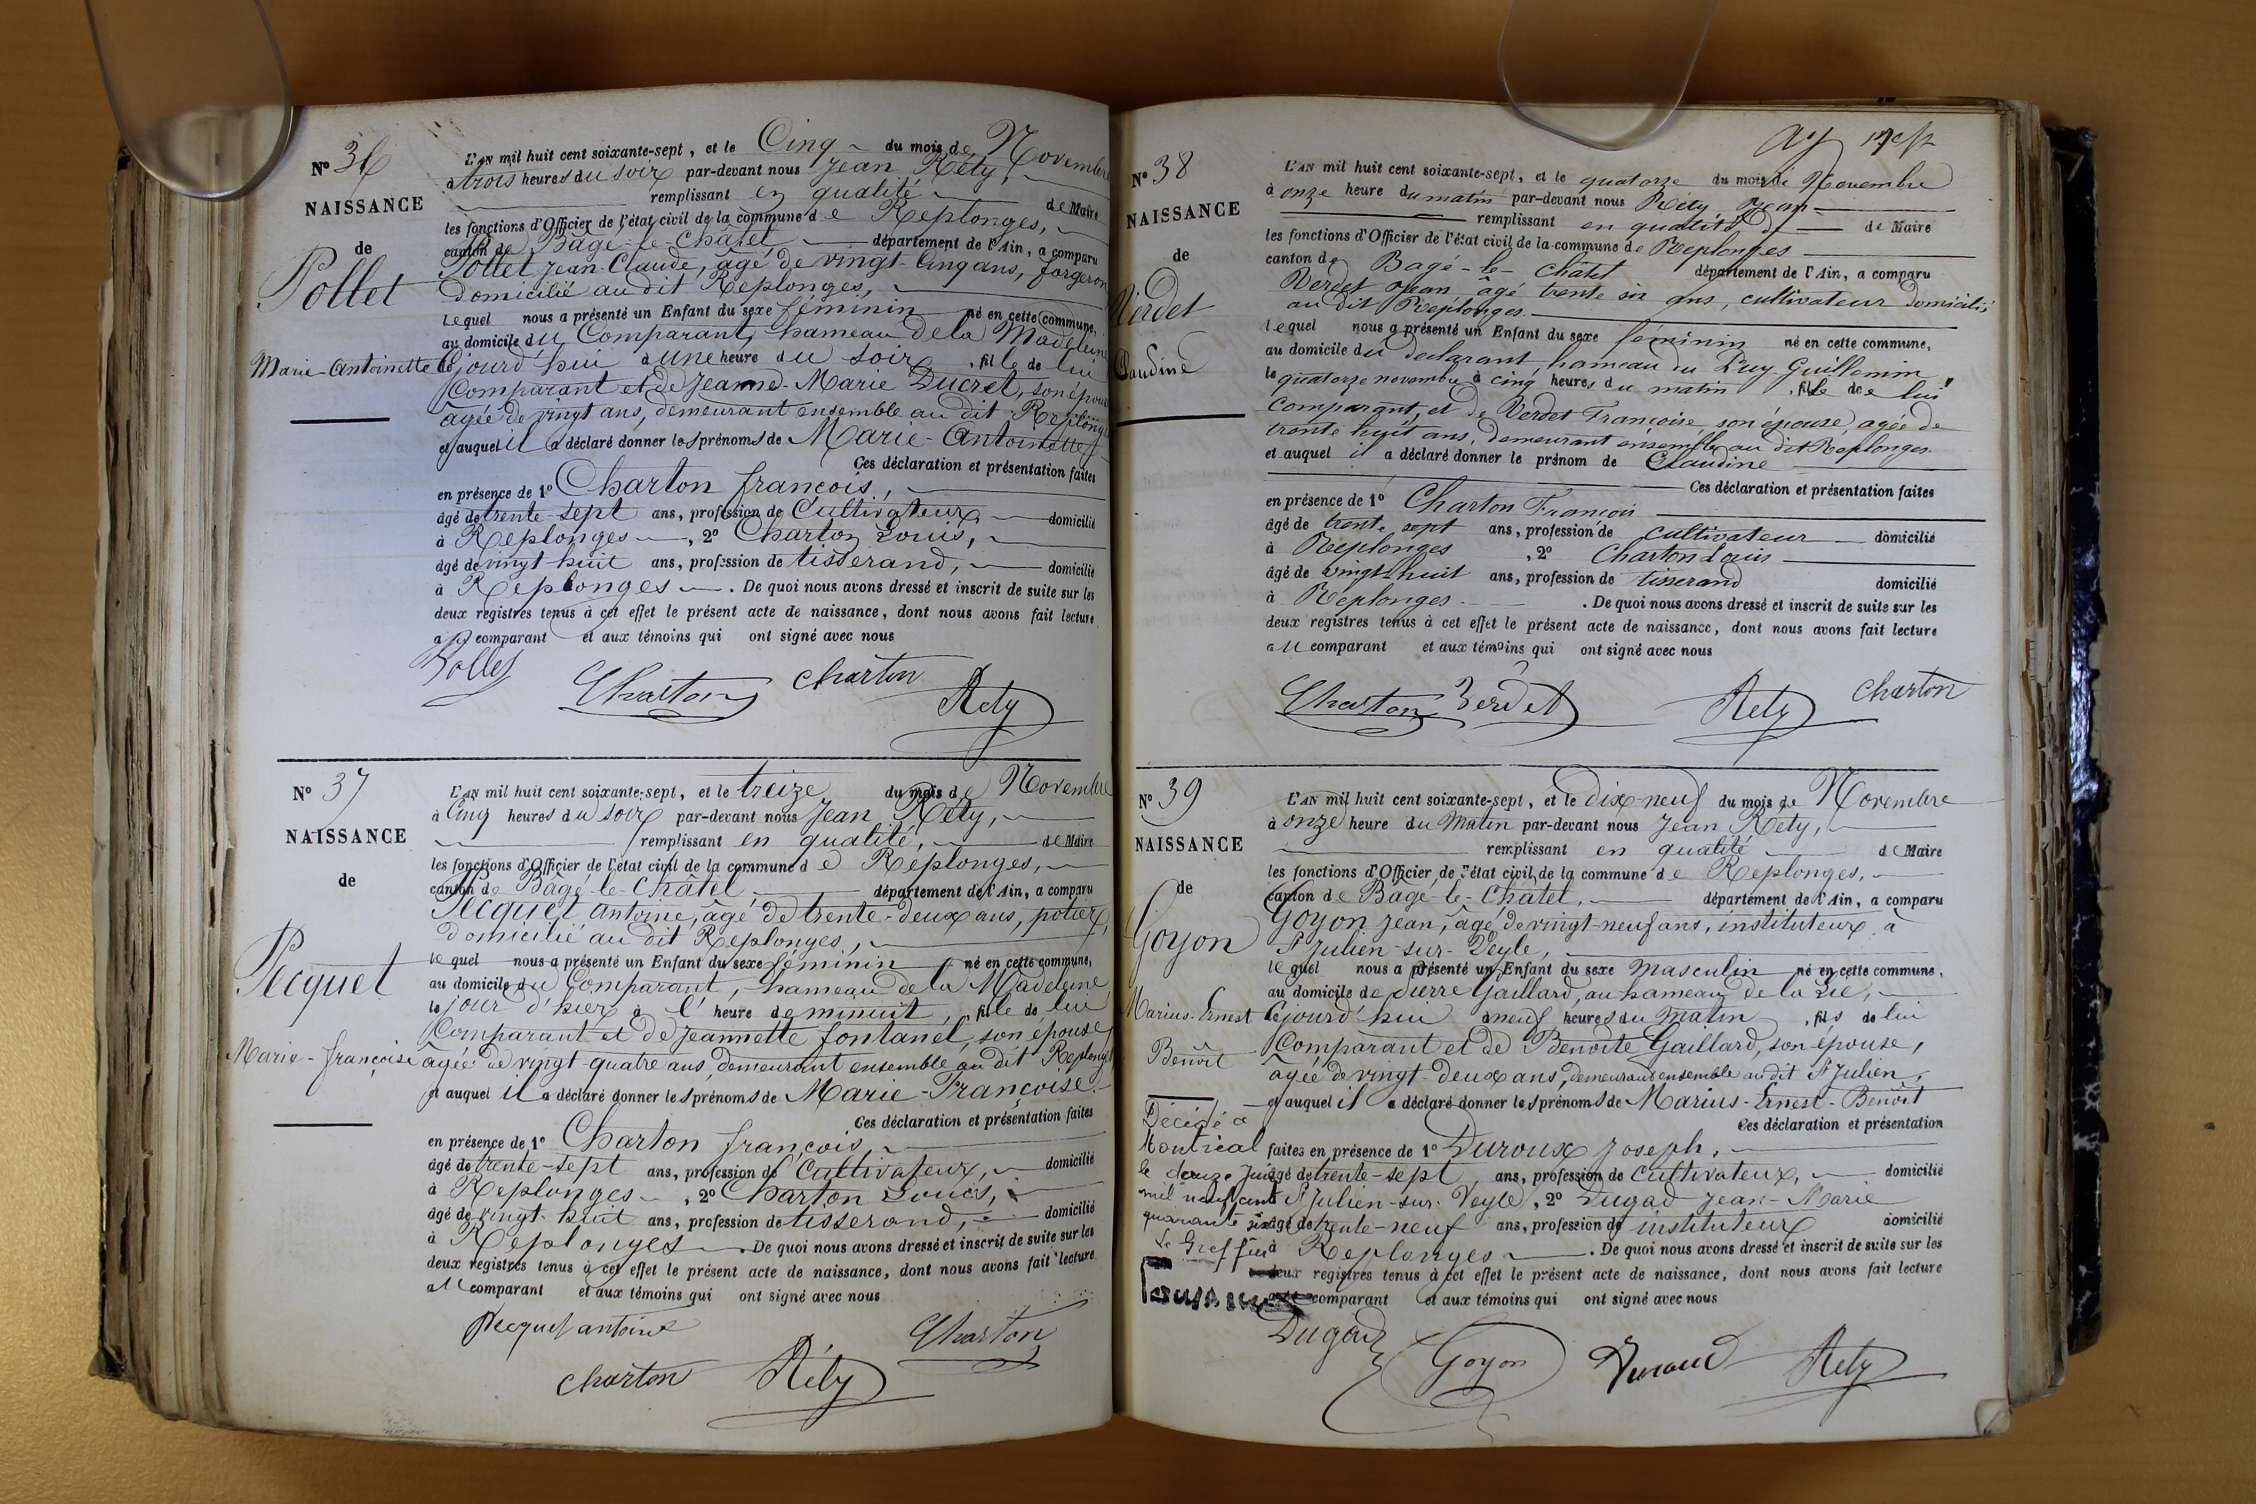 N° 36
NAISSANCE
de
Pollet
Marie-Antoinette
L'AN mil huit cent soixante-sept, et le Cinq du mois de Novembre
à trois heures du soir par-devant nous Jean Réty,
remplissant en qualité de Maire
les fonctions d'Officier de l'état civil de la commune de Replonges,
canton de Bâgé-le-Châtel département de l'Ain, a comparu
Pollet Jean-Claude, âgé de vingt-cinq ans, forgeron
domicilié au dit Replonges,
lequel nous a présenté un Enfant du sexe féminin né en cette commune,
au domicile du Comparant, hameau de la Madeleine
le jourd'hui à une heure du soir, fille de lui
Comparant et de Jeanne-Marie Ducret, son épouse
âgée de vingt ans, demeurant ensemble au dit Replonges
et auquel il a déclaré donner les prénoms de Marie-Antoinette
Ces déclaration et présentation faites
en présence de 1° Charton françois,
âgé de trente-sept ans, profession de Cultivateur, domicilié
à Replonges, 2° Charton Louis,
âgé de vingt-huit ans, profession de tisserand, domicilié
à Replonges. De quoi nous avons dressé et inscrit de suite sur les
deux registres tenus à cet effet le présent acte de naissance, dont nous avons fait lecture
au comparant et aux témoins qui ont signé avec nous
Pollet
Charton charton Réty
N° 37
NAISSANCE
de
Pecquet
Marie-françoise
L'AN mil huit cent soixante-sept, et le treize du mois de Novembre
à Cinq heures du soir par-devant nous Jean Réty,
remplissant en qualité, de Maire
les fonctions d'Officier de l'état civil de la commune de Replonges,
canton de Bâgé-le-Châtel, département de l'Ain, a comparu
Pecquet antoine, âgé de trente-deux ans, potier,
domicilié au dit Replonges,
lequel nous a présenté un Enfant du sexe féminin né en cette commune,
au domicile du Comparant, hameau de la Madeleine,
le jour d'hier à l' heure de minuit, fille de lui
Comparant et de Jeannette fontanel, son épouse,
âgée de vingt-quatre ans, demeurant ensemble au dit Replonges
et auquel il a déclaré donner les prénoms de Marie-Françoise
Ces déclaration et présentation faites
en présence de 1° Charton françois
âgé de trente-sept ans, profession de Cultivateur, domicilié
à Replonges, 2° Charton Louis,
âgé de vingt-huit ans, profession de tisserand, domicilié
à Replonges. De quoi nous avons dressé et inscrit de suite sur les
deux registres tenus à cet effet le présent acte de naissance, dont nous avons fait lecture
au comparant et aux témoins qui ont signé avec nous
Pecquet antoine
Charton
charton Réty
N° 38
NAISSANCE
de
Verdet
Claudine
L'AN mil huit cent soixante-sept, et le quatorze du mois de Novembre
à onze heure du matin par-devant nous Réty Jean
remplissant en qualité de Maire
les fonctions d'Officier de l'état civil de la commune de Replonges
canton de Bagé-le-Châtel département de l'Ain, a comparu
Verdet Jean âgé trente six ans, cultivateur domicilié
au dit Replonges.
lequel nous a présenté un Enfant du sexe féminin né en cette commune,
au domicile du déclarant, hameau du Puy Guillemin
le quatorze novembre à cinq heures du matin, fille de lui
comparant, et de Verdet Françoise, son épouse, agée de
trente huit ans, demeurant ensemble au dit Replonges
et auquel il a déclaré donner le prénom de Claudine
Ces déclaration et présentation faites
en présence de 1° Charton François
âgé de trente sept ans, profession de cultivateur domicilié
à Replonges, 2° Charton Louis
âgé de vingt huit ans, profession de tisserand domicilié
à Replonges. De quoi nous avons dressé et inscrit de suite sur les
deux registres tenus à cet effet le présent acte de naissance, dont nous avons fait lecture
au comparant et aux témoins qui ont signé avec nous
Charton Verdet Réty charton
N° 39
NAISSANCE
de
Goyon
Marius-Ernest
Benoît
Décédé à
Montréal
le douze Juin
mil neuf cent
quarante six
Le Greffier
L'AN mil huit cent soixante-sept, et le dix-neuf du mois de Novembre
à onze heure du Matin par-devant nous Jean Réty,
remplissant en qualité de Maire
les fonctions d'Officier de l'état civil de la commune de Replonges,
canton de Bâgé-le-Châtel, département de l'Ain, a comparu
Goyon Jean, âgé de vingt-neuf ans, instituteur à
St Julien-sur-Veyle,
lequel nous a présenté un Enfant du sexe Masculin né en cette commune,
au domicile de Pierre Gaillard, au hameau de la
le jourd'hui à neuf heures du Matin, fils de lui
Comparant et de Benoîte Gaillard, son épouse,
âgée de vingt-deux ans, demeurant ensemble au dit St Julien,
et auquel il a déclaré donner les prénoms de Marius-Ernest-Benoît
Ces déclaration et présentation
faites en présence de 1° Duroux Joseph,
âgé de trente-sept ans, profession de cultivateur, domicilié
à St Julien-sur-Veyle, 2° Dugad Jean-Marie
âgé de trente-neuf ans, profession de instituteur domicilié
à Replonges. De quoi nous avons dressé et inscrit de suite sur les
deux registres tenus à cet effet le présent acte de naissance, dont nous avons fait lecture
comparant et aux témoins qui ont signé avec nous
Dugad Goyon Réty